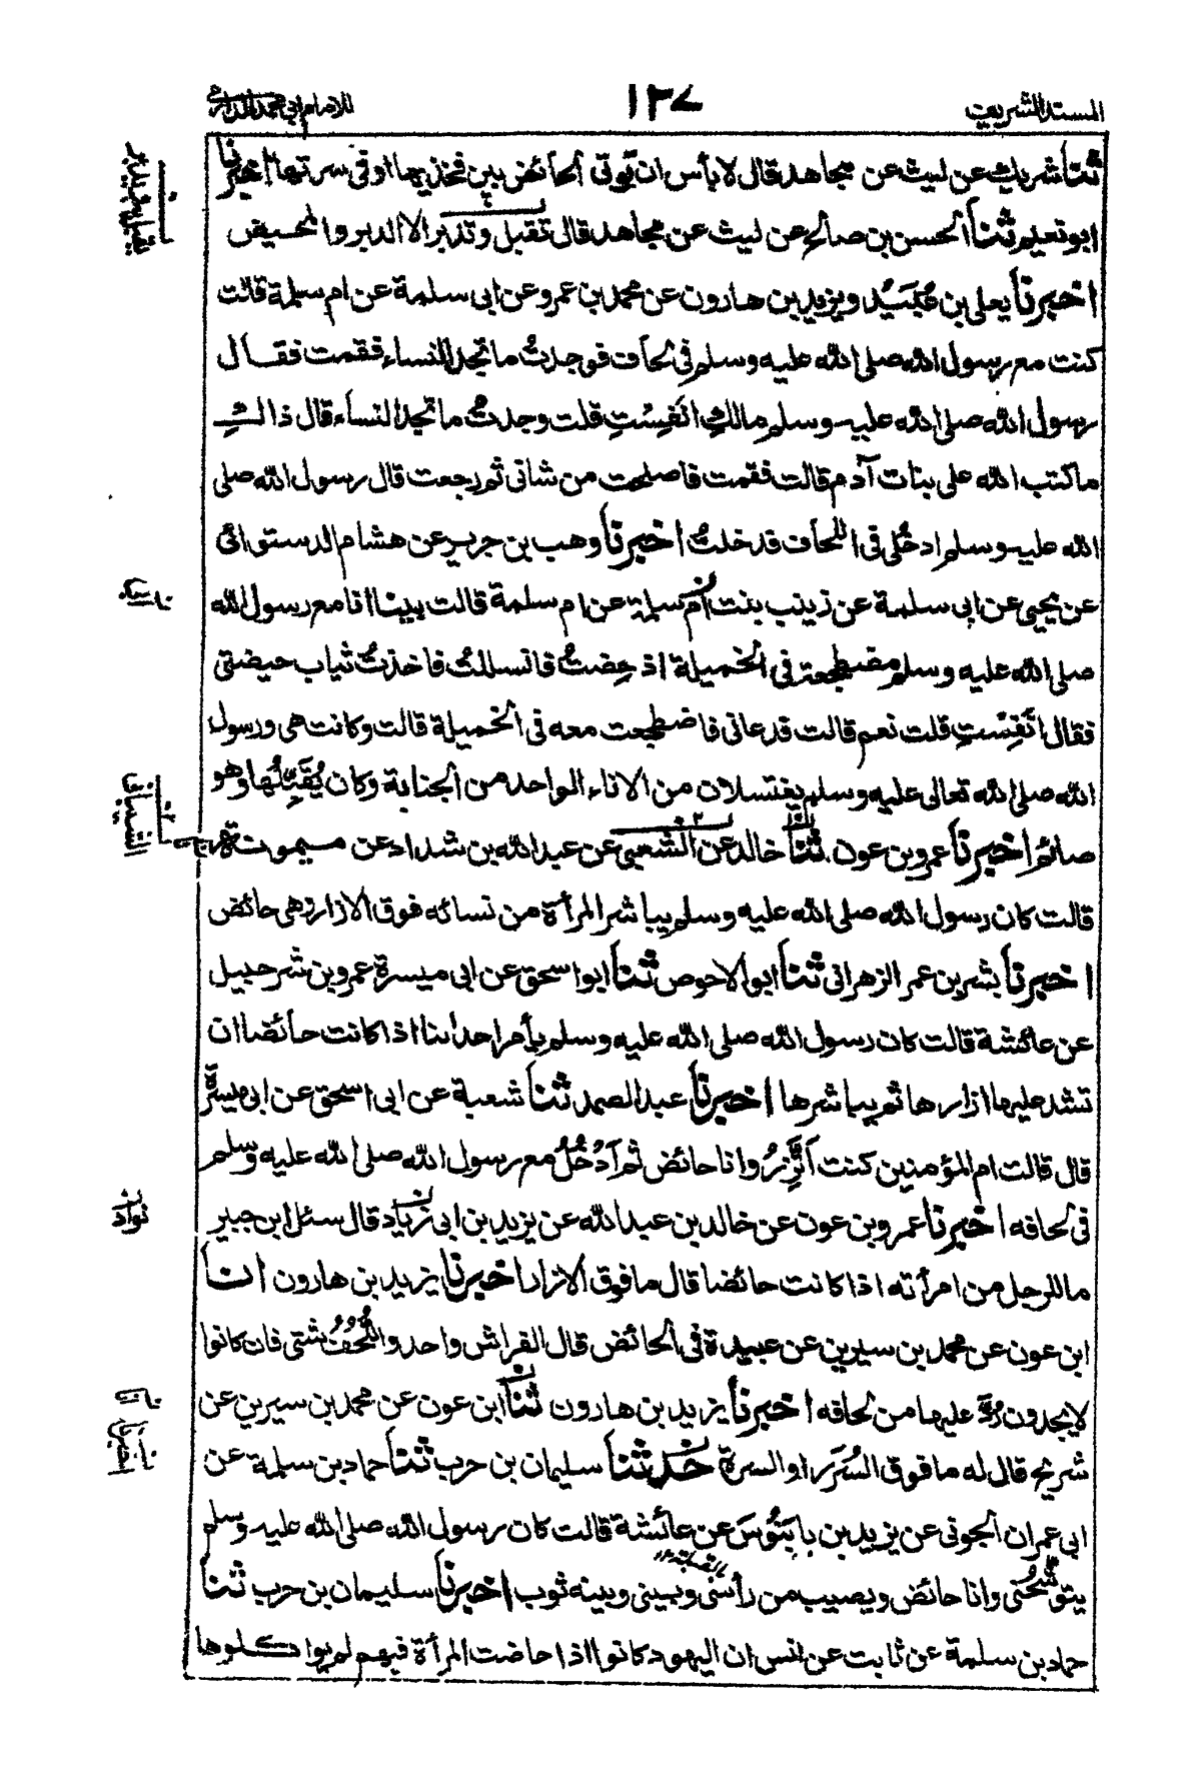 المسند الشريف
١٣٧
للامام ابي محمد الدارمي
ثنا شريك عن ليث عن مجاهد قال لا بأس ان تؤتى الحائض بين فخذيها او في سرتها اخبرنا
ابو نعيم ثنا الحسن بن صالح عن ليث عن مجاهد قال تقبل وتدبر الا الدبر والمحيض
اخبرنا يعلى بن عُبَيْد ويزيد بن هارون عن محمد بن عمرو عن ابى سلمة عن ام سلمة قالت
كنت مع رسول الله صلى الله عليه وسلم في لحاف فوجدتُ ما تجد النساء فقمت فقال
رسول الله صلى الله عليه وسلم مالكِ انَفِسْتِ قلت وجدتُ ما تجد النساء قال ذالكِ
ما كتب الله على بنات آدم قالت فقمت فاصلحت من شانى ثم رجعت قال رسول الله صلى
الله عليه وسلم ادخُلى فى اللحاف فدخلتُ اخبرنا وهب بن جرير عن هشام الدستوائى
عن يحيى عن ابى سلمة عن زينب بنت ام سلمة عن ام سلمة قالت بينا انا مع رسول الله
صلى الله عليه وسلم مضطجعة فى الخميلة اذ حِضتُ فانسللتُ فاخذتُ ثياب حيضتى
فقال انَفِسْتِ قلت نعم قالت فدعانى فاضطجعت معه فى الخميلة قالت وكانت هى ورسول
الله صلى الله تعالى عليه وسلم يغتسلان من الاناء الواحد من الجنابة وكان يُقَبِّلُها وهو
صائم اخبرنا عمرو بن عون ثنا خالد عن الشعبى عن عبد الله بن شداد عن ميمونة
قالت كان رسول الله صلى الله عليه وسلم يباشر المرأة من نسائه فوق الازار وهى حائض
اخبرنا بشر بن عمر الزهرانى ثنا ابو الاحوص ثنا ابو اسحق عن ابى ميسرة عمرو بن شرحبيل
عن عائشة قالت كان رسول الله صلى الله عليه وسلم يأمر احدٰنا اذا كانت حائضا ان
تشد عليها ازارها ثم يباشرها اخبرنا عبد الصمد ثنا شعبة عن ابى اسحق عن ابى ميسرة
قال قالت ام المؤمنين كنت اَتَّزِرُ وانا حائض ثم اَدْخُلُ مع رسول الله صلى الله عليه وسلم
فى لحافه اخبرنا عمرو بن عون عن خالد بن عبد الله عن يزيد بن ابى زياد قال سئل ابن جبير
ما للرجل من امرأته اذا كانت حائضا قال ما فوق الازار اخبرنا يزيد بن هارون انا
ابن عون عن محمد بن سيرين عن عبيدة فى الحائض قال الفراش واحد واللُّحُفُ شتى فان كانوا
لا يجدون رَدَّ عليها من لحافه اخبرنا يزيد بن هارون ثنا ابن عون عن محمد بن سيرين عن
شريح قال له ما فوق السُرَر او السرة حدثنا سليمان بن حرب ثنا حماد بن سلمة عن
ابى عمران الجونى عن يزيد بن بابَنُوسَ عن عائشة قالت كان رسول الله صلى الله عليه وسلم
يتوشَّحُنى وانا حائض ويصيب من رأسى وبينى وبينه ثوب اخبرنا سليمان بن حرب ثنا
حماد بن سلمة عن ثابت عن انس ان اليهود كانوا اذا حاضت المرأة فيهم لم يواكلوها
الشيبانى